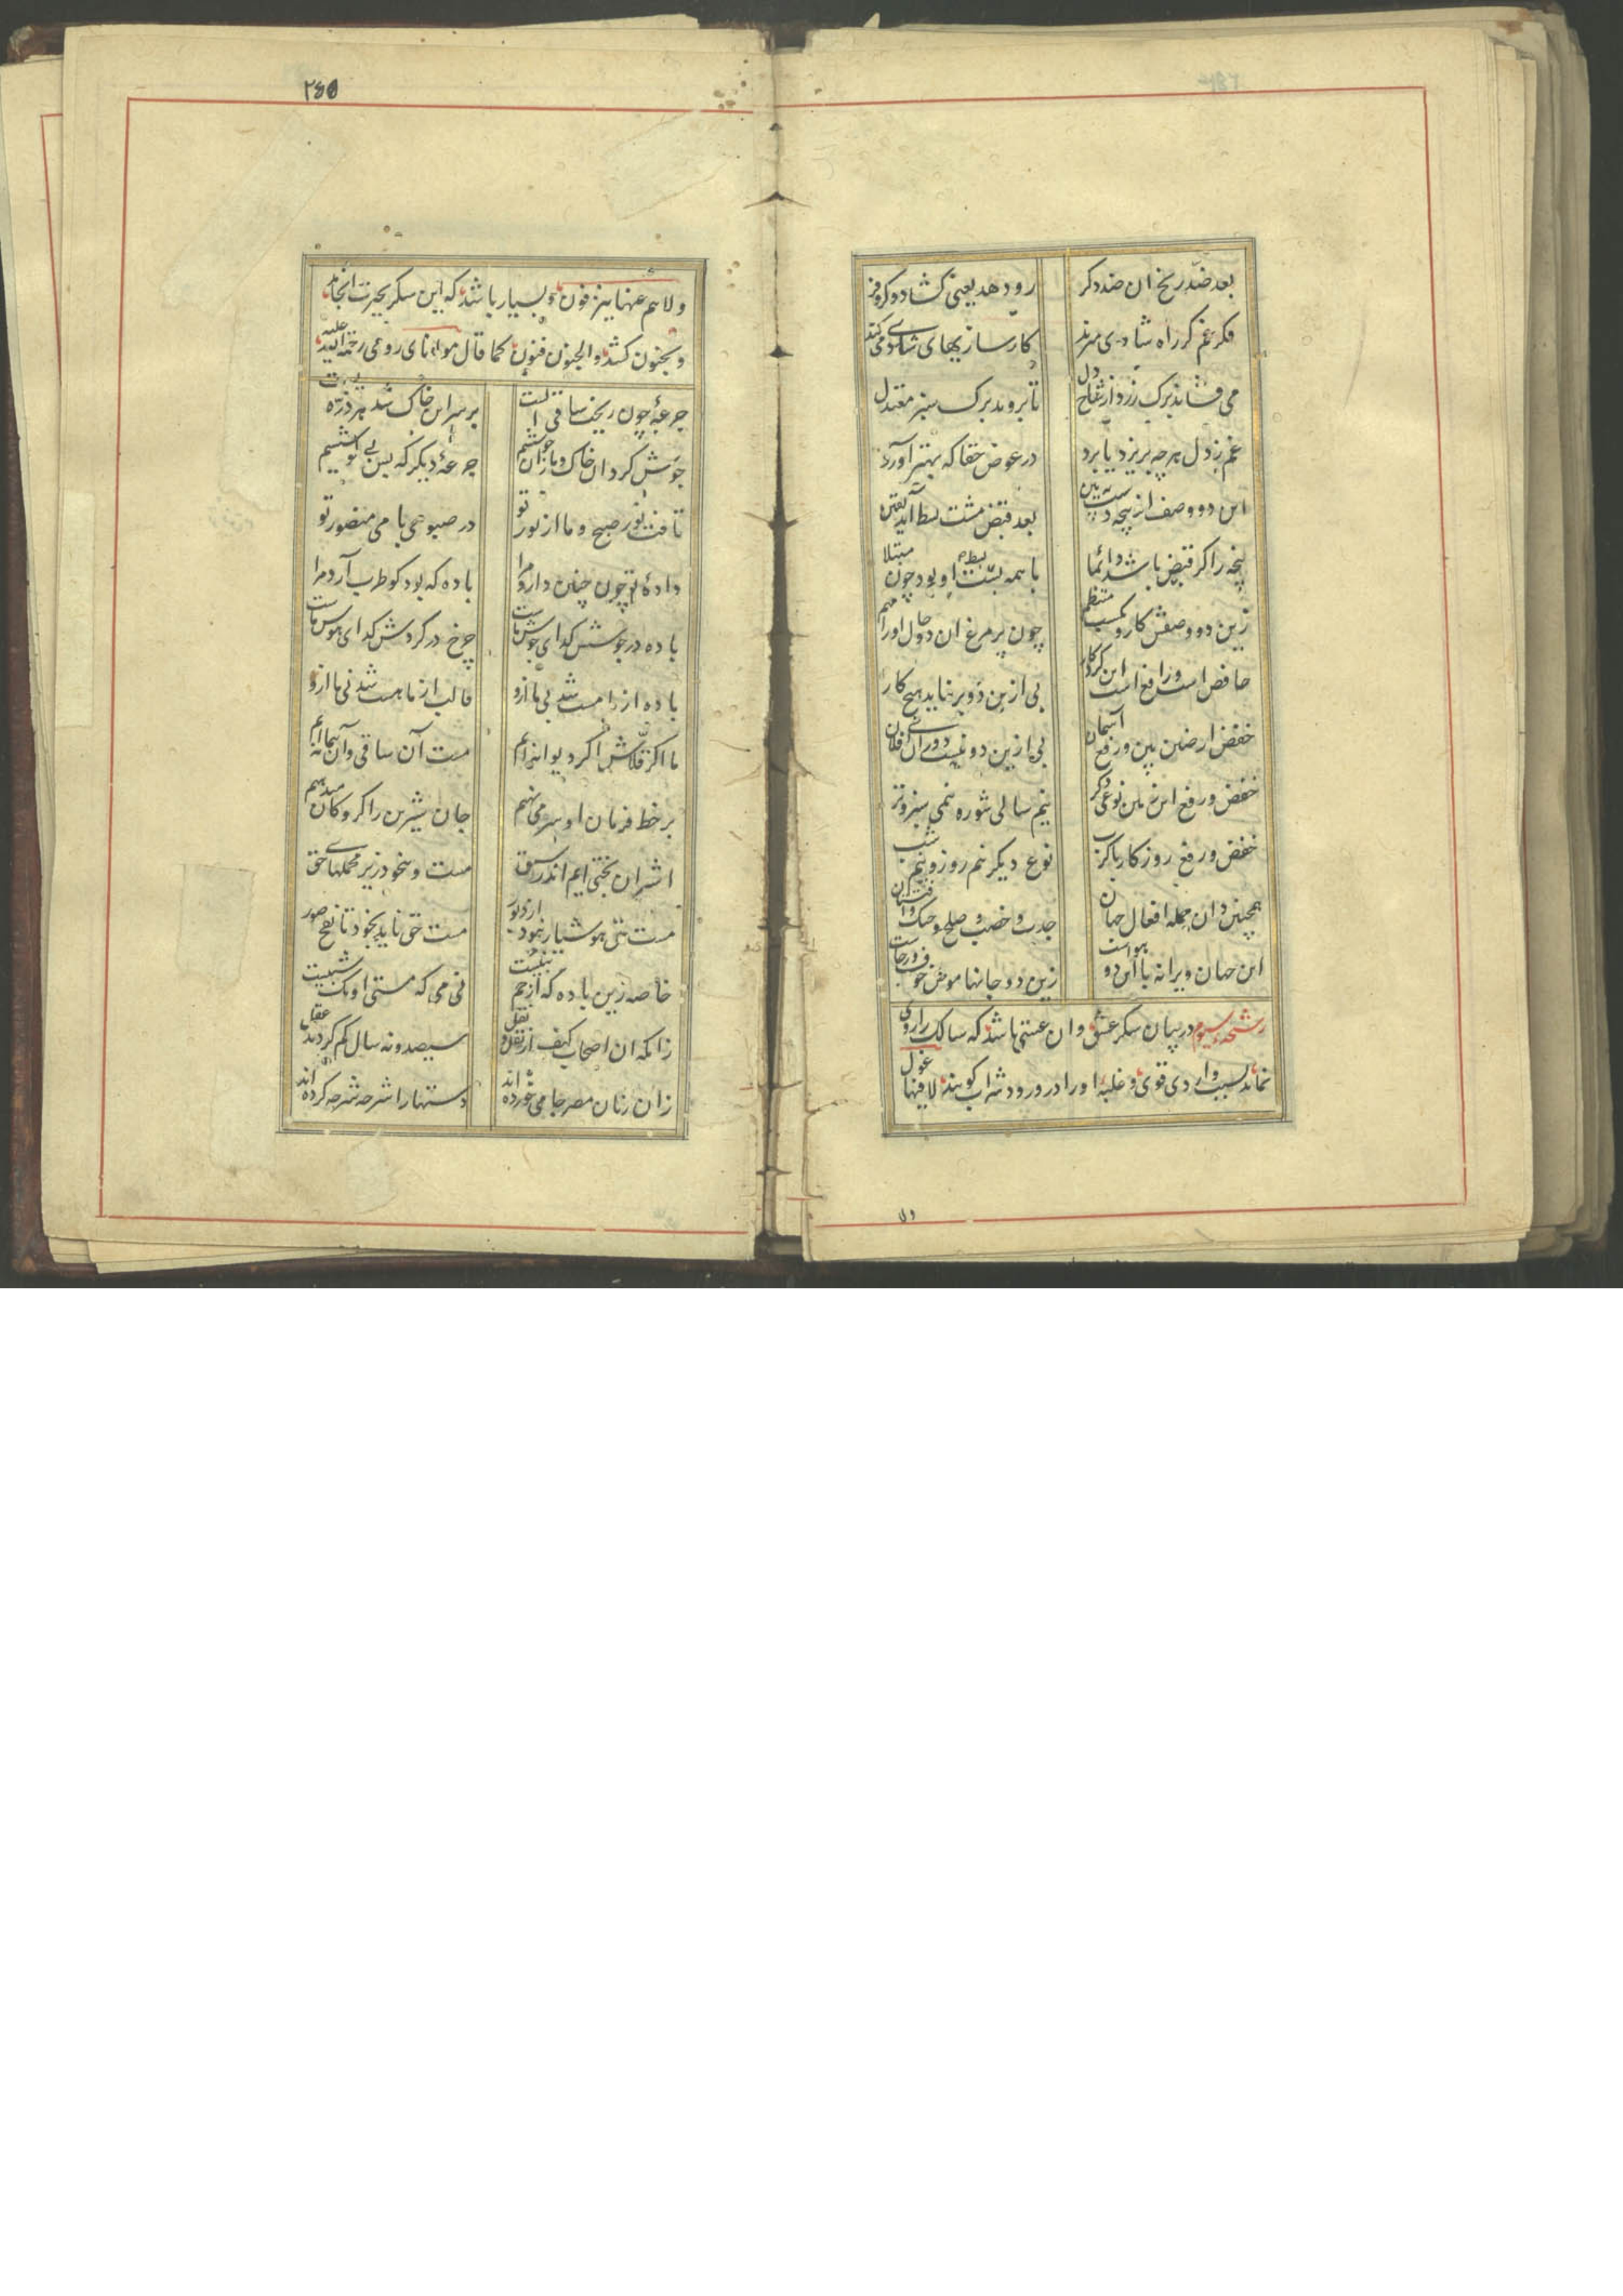 بعد ضد رنج آن ضد دکر رو دهد یعنی کشاد و کروفر
فکر غم کر راه شادی میزند کارسازیهای شادی می کند
می فشاند برک زرد از شاخ دل تا بروید برک سبز معتدل
غم ز دل هر چه بریزد یا برد در عوض حقا که بهتر آورد
این دو وصف از پنجه دستت به بین بعد قبض مشت بسط آید یقین
پنجه را کر قبض باشد دائما یا همه بسط او بود چون مبتلا
زین دو وصفش کار و مکسب منتظم چون پر مرغ این دو حال او را مهم
خافض است و رافع است این کردکار بی ازین دو بر نیاید هیچ کار
خفض ارضین بین و رفع آسمان بی ازین دو نیست دوران ای فلان
خفض و رفع این زمین نوعی دکر نیم سالی شوره نیمی سبز و تر
خفض و رفع روزکار با کرب نوع دیکر نیم روز و نیم شب
همچنین دان جمله افعال جهان جدب و خصب و صلح و جنک و افتتان
این جهان ویرانه با این دو هواست زین دو جانها موطن خوف و رجاست
رشحه سیوم در بیان سکر عشق و آن عشقی باشد که سالک را روی
نماند بسبب واردی قوی و غلبه او را در ورود شراب کویند لا فیها غول
ولا
۲۶۵
ولا هم عنها ینزفون و بسیار باشد که این سکر بحیرت انجامد
و بجنون کشد و الجنون فنون کما قال مولانای رومی رحمة الله علیه
جرعهٔ چون ریخت ساقی الست بر سر این خاک شد هر ذره مست
جوش کرد آن خاک و ما زان جوششیم جرعهٔ دیکر که بس بی کوششیم
تافت نور صبح و ما از نور تو در صبوحی با می منصور تو
دادهٔ تو چون چنین دارد مرا باده که بود کو طرب آرد مرا
باده در جوشش کدای جوش ماست چرخ در کردش کدای هوش ماست
باده از ما مست شد نی ما ازو قالب از ما هست شد نی ما ازو
ما اکر قلاش اکر دیوانه ایم مست آن ساقی و آن پیمانه ایم
بر خط فرمان او سر می نهیم جان شیرین را کروکان میدهیم
اشتران بختی ایم اندر سبق مست و بیخود زیر محملهای حق
مست بنی هوشیار نبود از دبور مست حق ناید بخود تا نفخ صور
خاصه زین باده که از خم بنیست نی می که مستی او یک شبیست
زانکه آن اصحاب کهف از نقل و نقل سیصد و نه سال کم کردند عقل
زان زنان مصر جامی خورده اند دستها را شرحه شرحه کرده اند